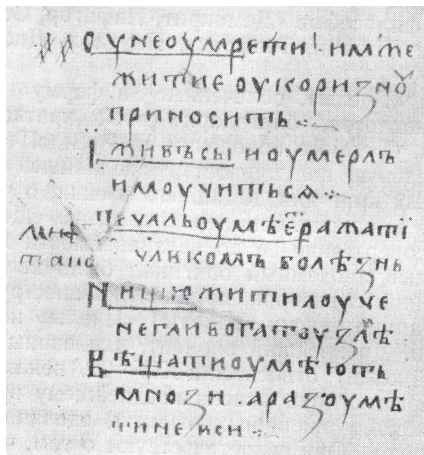 Оунеоумрети. имже
житие оукоризно
приносить
Ї живъсы и оумерлъ
имоучиться
Печальоумѣеражатї
чликомъ болѣзнь
Нищюжитилоуче
неглибогатоузлѣ
Вѣщатиоумѣють
мнози. аразоумѣ
тине вси